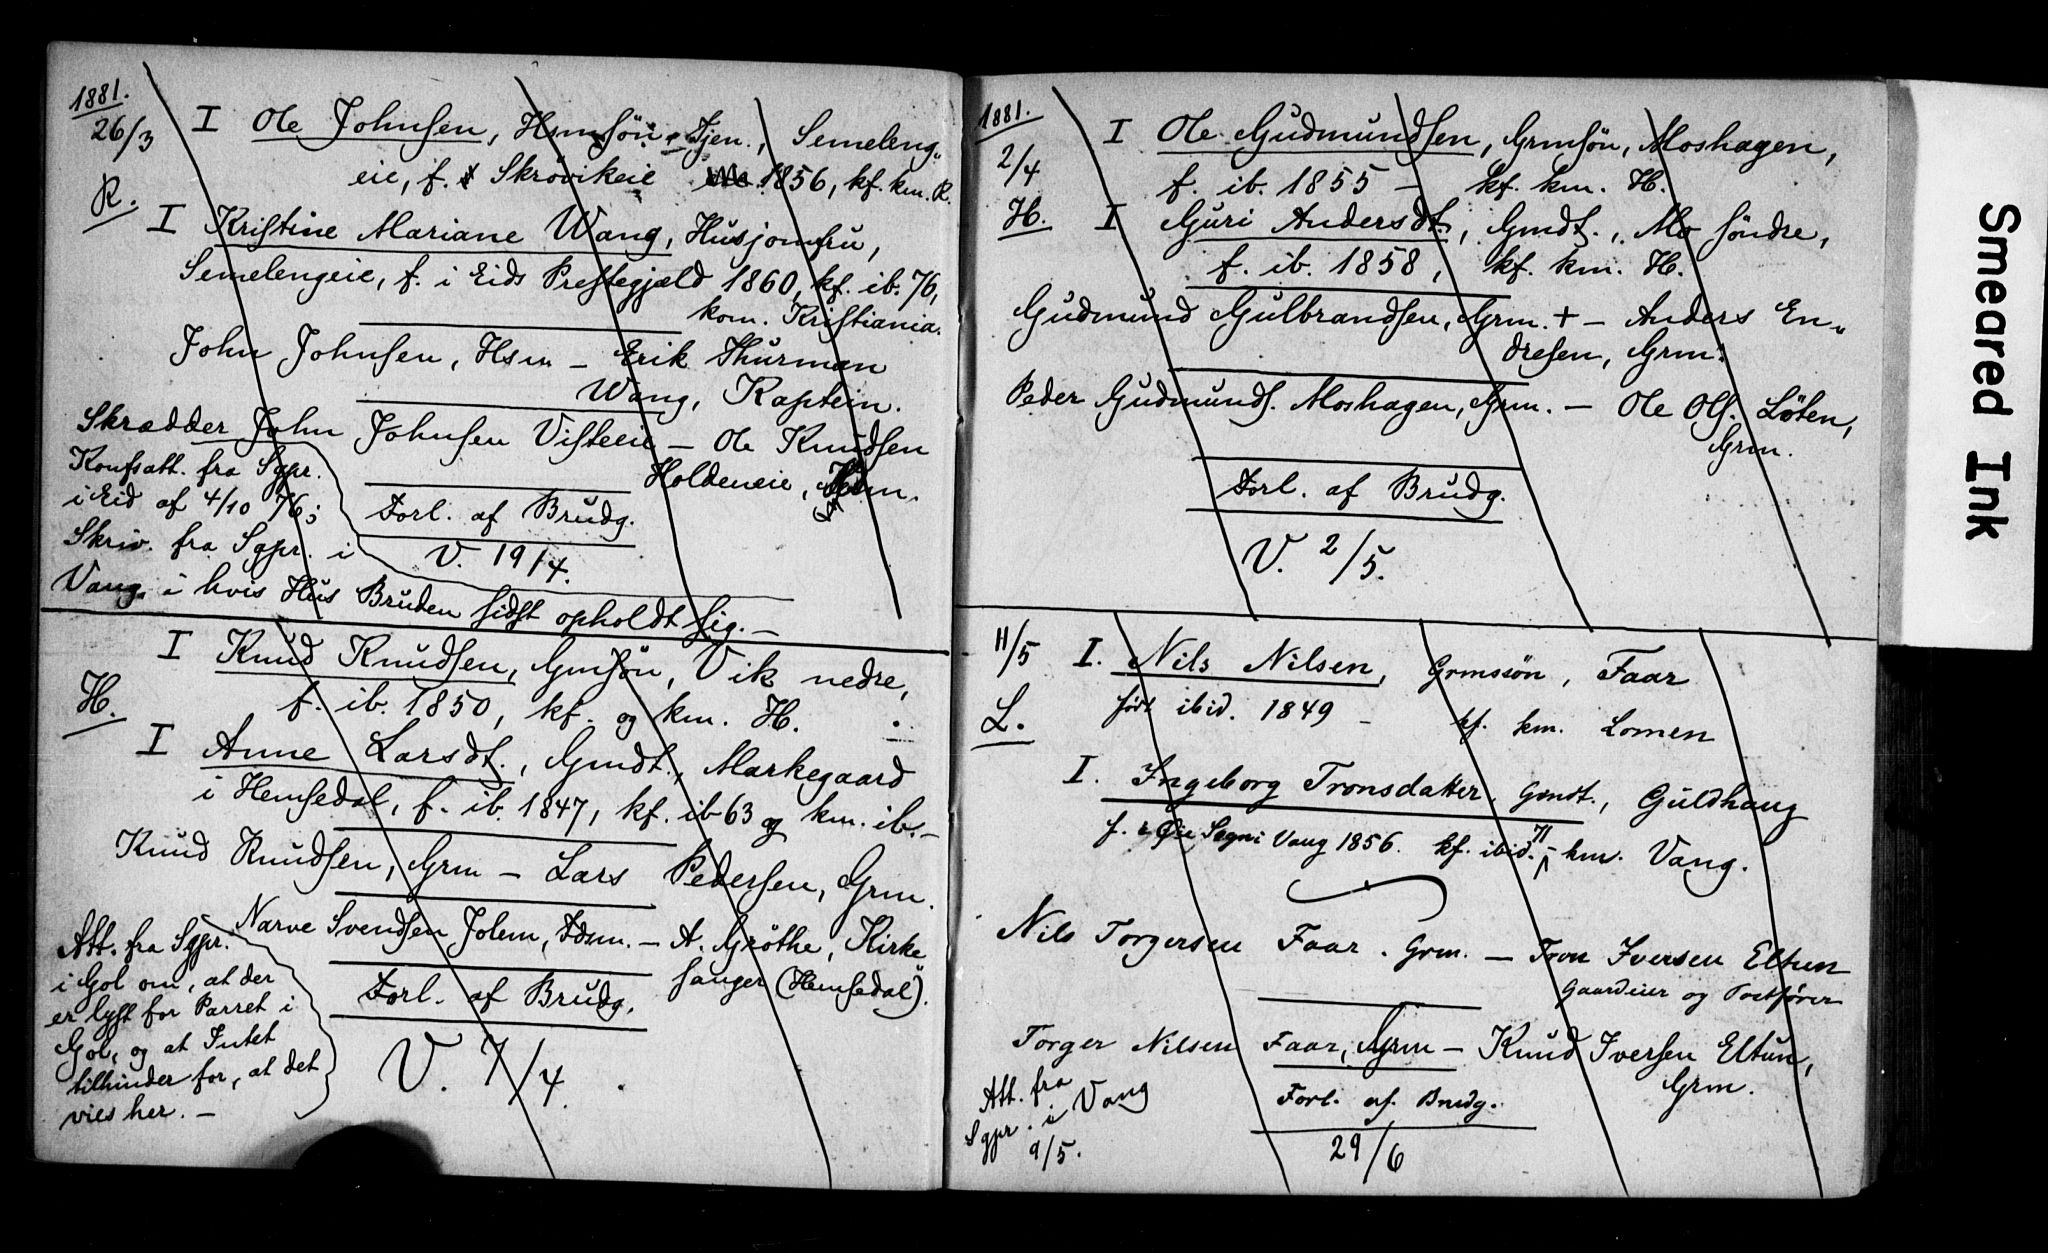 1881.
26/3
R.
I Ole Johnsen, Hsmsön, Tjen., Semeleng-
eie, f. Skrövikeie 1856, kf. km. R.
I Kristine Mariane Wang, Husjomfru,
Semelengeie, f. i Eids Prestegjæld 1860, kf. ib. 76,
kom. Kristiania.
John Johnsen, Hsm – Erik Thurman
Wang, Kaptein.
Skrædder John Johnsen Visteeie – Ole Knudsen
Holdeneie, Hsm.
Konfsatt. fra Sgpr.
i Eid af 4/10 76;
Skriv. fra Sgpr. i
Vang i hvis Hus Bruden sidst opholdt sig. –
Forl. af Brudg.
V. 19/4.
H.
I Knud Knudsen, Gmsön, Vik nedre,
f. ib. 1850, kf. og km. H.
I Anne Larsdt., Gmdt., Markegaard
i Hemsedal, f. ib. 1847, kf. ib 63 og km. ib. –
Knud Knudsen, Grm – Lars Pedersen, Grm.
Narve Svendsen Jolem, Fdsm. – A. Gröthe, Kirke
sanger (Hemsedal).
Att. fra Sgpr.
i Gol om, at der
er lyst for Parret i
Gol, og at Intet
tilhinder for, at det
vies her. –
Forl. af Brudg.
V. 7/4.
1881.
2/4
H.
I Ole Gudmundsen, Grmsön, Moshagen,
f. ib. 1855 – kf. km. H.
I Guri Andersdt., Gmdt., Mo söndre,
f. ib. 1858, kf. km. H.
Gudmund Gulbrandsen, Grm. + – Anders En-
dresen, Grm.
Peder Gudmunds. Moshagen, Grm. – Ole Ols. Löten,
Grm.
Forl. af Brudg.
V. 2/5.
11/5
L.
I. Nils Nilsen, Grmssön, Faar
født ibid. 1849 – kf. km. Lomen
I. Ingeborg Tronsdatter, Grmdt., Guldhaug
f. i Øie Sogn i Vang 1856. kf. ibid. 71 – km. Vang.
Nils Torgersen Faar. Grm. – Tron Iversen Eltun
Gaardeier og Postfører
Torger Nilsen Faar, Grm – Knud Iversen Eltun,
Grm.
Att. fra
Sgpr. i Vang
9/5.
Forl. af Brudg.
29/6
Smeared Ink